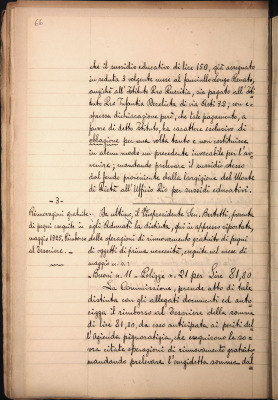 66
che il sussidio educativo di lire 150, già assegnato
in seduta 3 volgente mese al fanciullo Longo Renato,
anziché all'Istituto Pro Pueritia, sia pagato all'Isti
tuto Pro Infantia Derelicta di via Asti 32; con e-
spressa dichiarazione però, che tale pagamento, a
favore di detto Istituto, ha carattere esclusivo di
oblazione per una volta tanto e non costituisce
in alcun modo un precedente invocabile per l'av-
venire; mandando prelevare il sussidio stesso
dal fondo proveniente dalla largizione del Monte
di Pietà all'Ufficio Pio per sussidi educativi.
- 3 -
Rinnovazioni gratuite
di pegni seguite in
maggio 1925. Rimborso
al Tesoriere.
Da ultimo, il Vicepresidente Cav. Bertotti, presenta
agli Adunati la distinta, qui in appresso riportata,
delle operazioni di rinnovamento gratuito di pegni
di oggetti di prima necessità, seguite nel mese di
maggio u. s.:
Buoni n. 11 - Polizze n. 21 per Lire 81,80
La Commissione, prende atto di tale
distinta con gli allegati documenti ed auto-
rizza il rimborso al Tesoriere della somma
di lire 81,80, da esso anticipata ai periti del
l'Azienda pignoratizia, che eseguirono le so-
vra citate operazioni di rinnovamento gratuito
mandando prelevare l'anzidetta somma dal